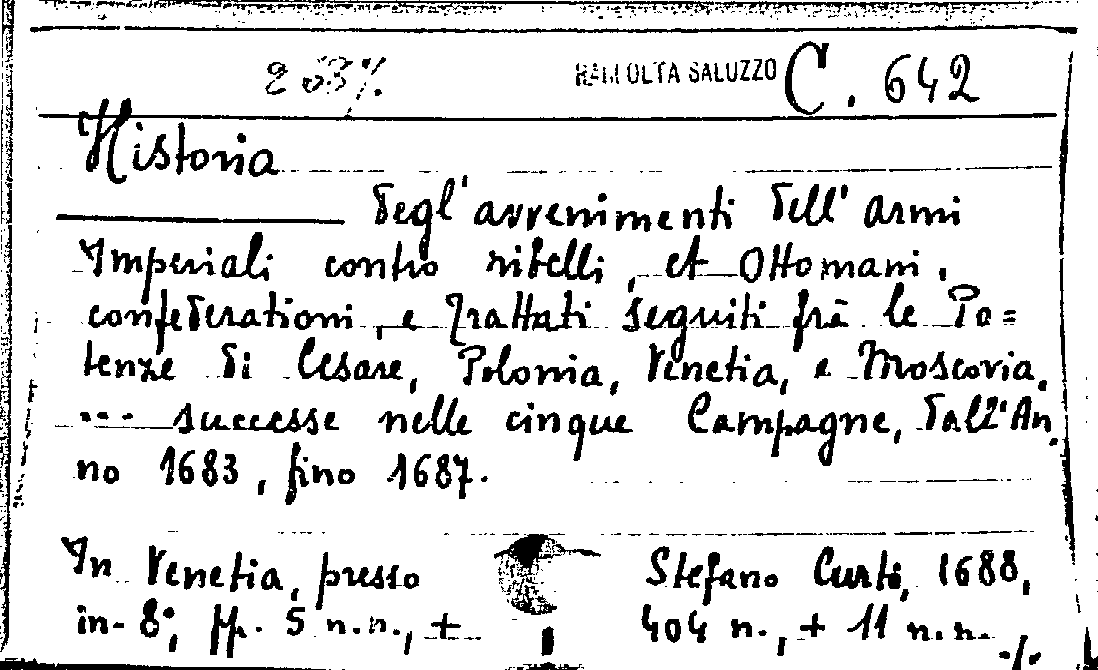 RACCOLTA SALUZZO C. 642
Historia
degl' avvenimenti dell' armi
Imperiali contro ribelli, et Ottomani,
confederationi, e Trattati seguiti frà le Po=
tenze di Cesare, Polonia, Venetia, e Moscovia,
... successe nelle cinque Campagne, dall'An
no 1683, fino 1687.
In Venetia, presso Stefano Curti, 1688,
in-8°, pp. 5 n.n., + 404 n., + 11 n.n.
./.